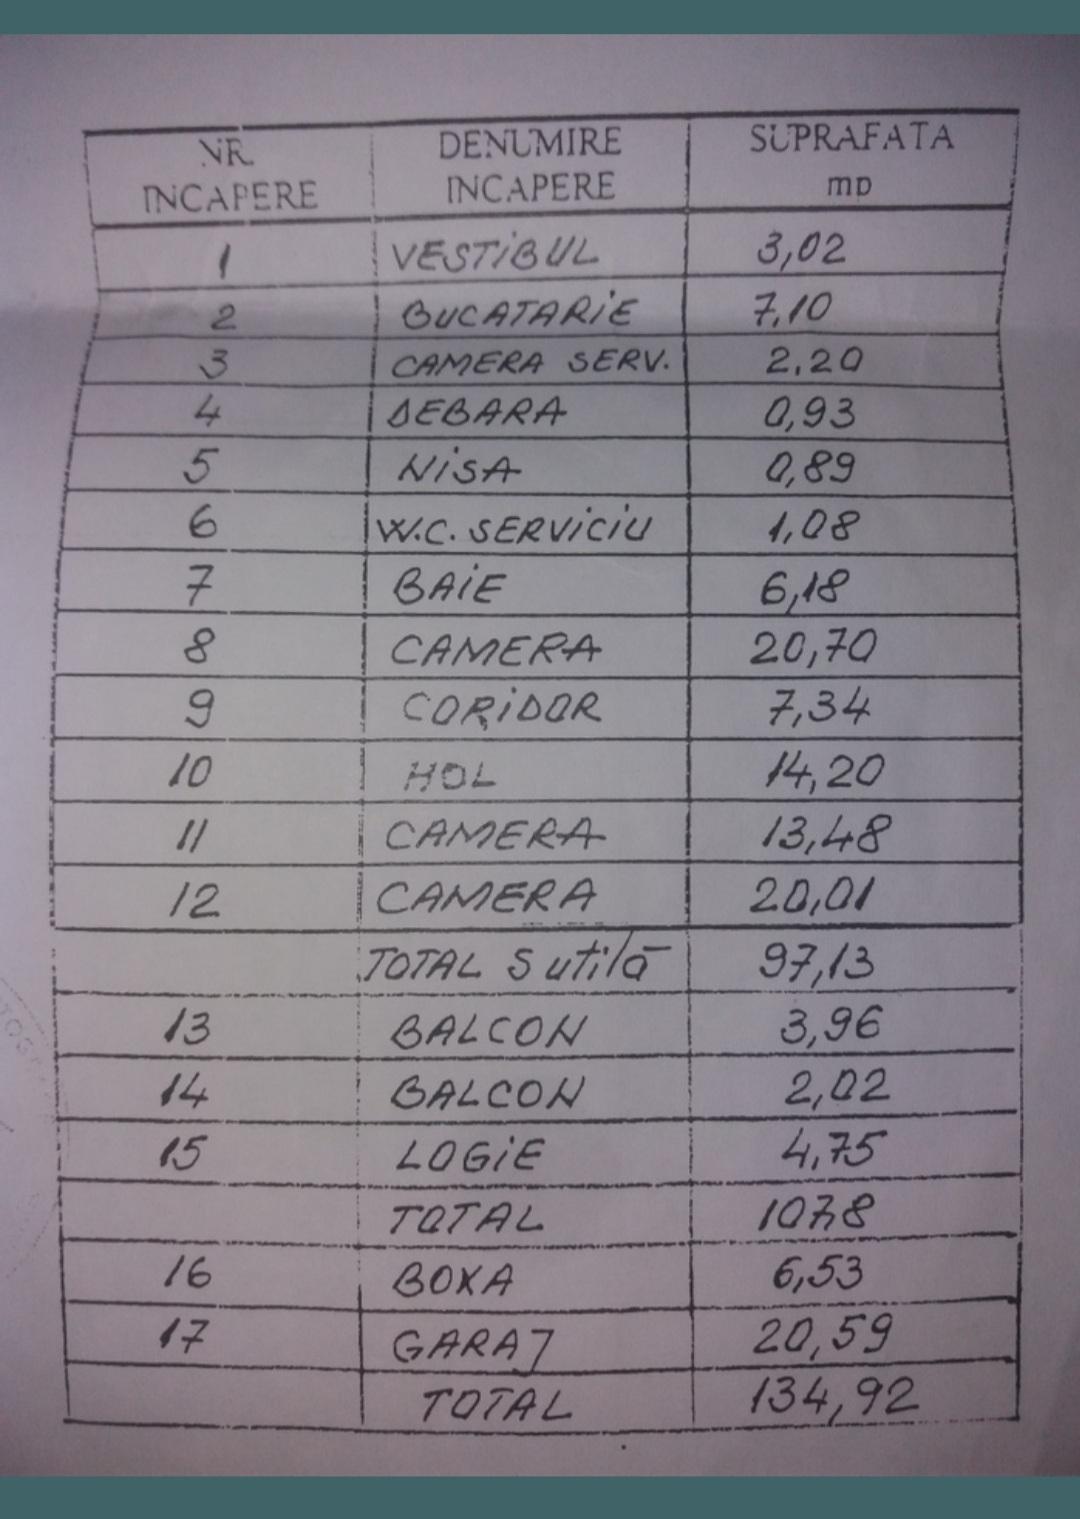 NR. INCAPERE DENUMIRE INCAPERE SUPRAFATA mp
1 VESTiBUL 3,02
2 BUCATARiE 7,10
3 CAMERA SERV. 2,20
4 DEBARA 0,93
5 NiSA 0,89
6 W.C. SERViCiU 1,08
7 BAiE 6,18
8 CAMERA 20,70
9 CORiDOR 7,34
10 HOL 14,20
11 CAMERA 13,48
12 CAMERA 20,01
TOTAL S utilă 97,13
13 BALCON 3,96
14 BALCON 2,02
15 LOGiE 4,75
TOTAL 107,8
16 BOXA 6,53
17 GARAJ 20,59
TOTAL 134,92